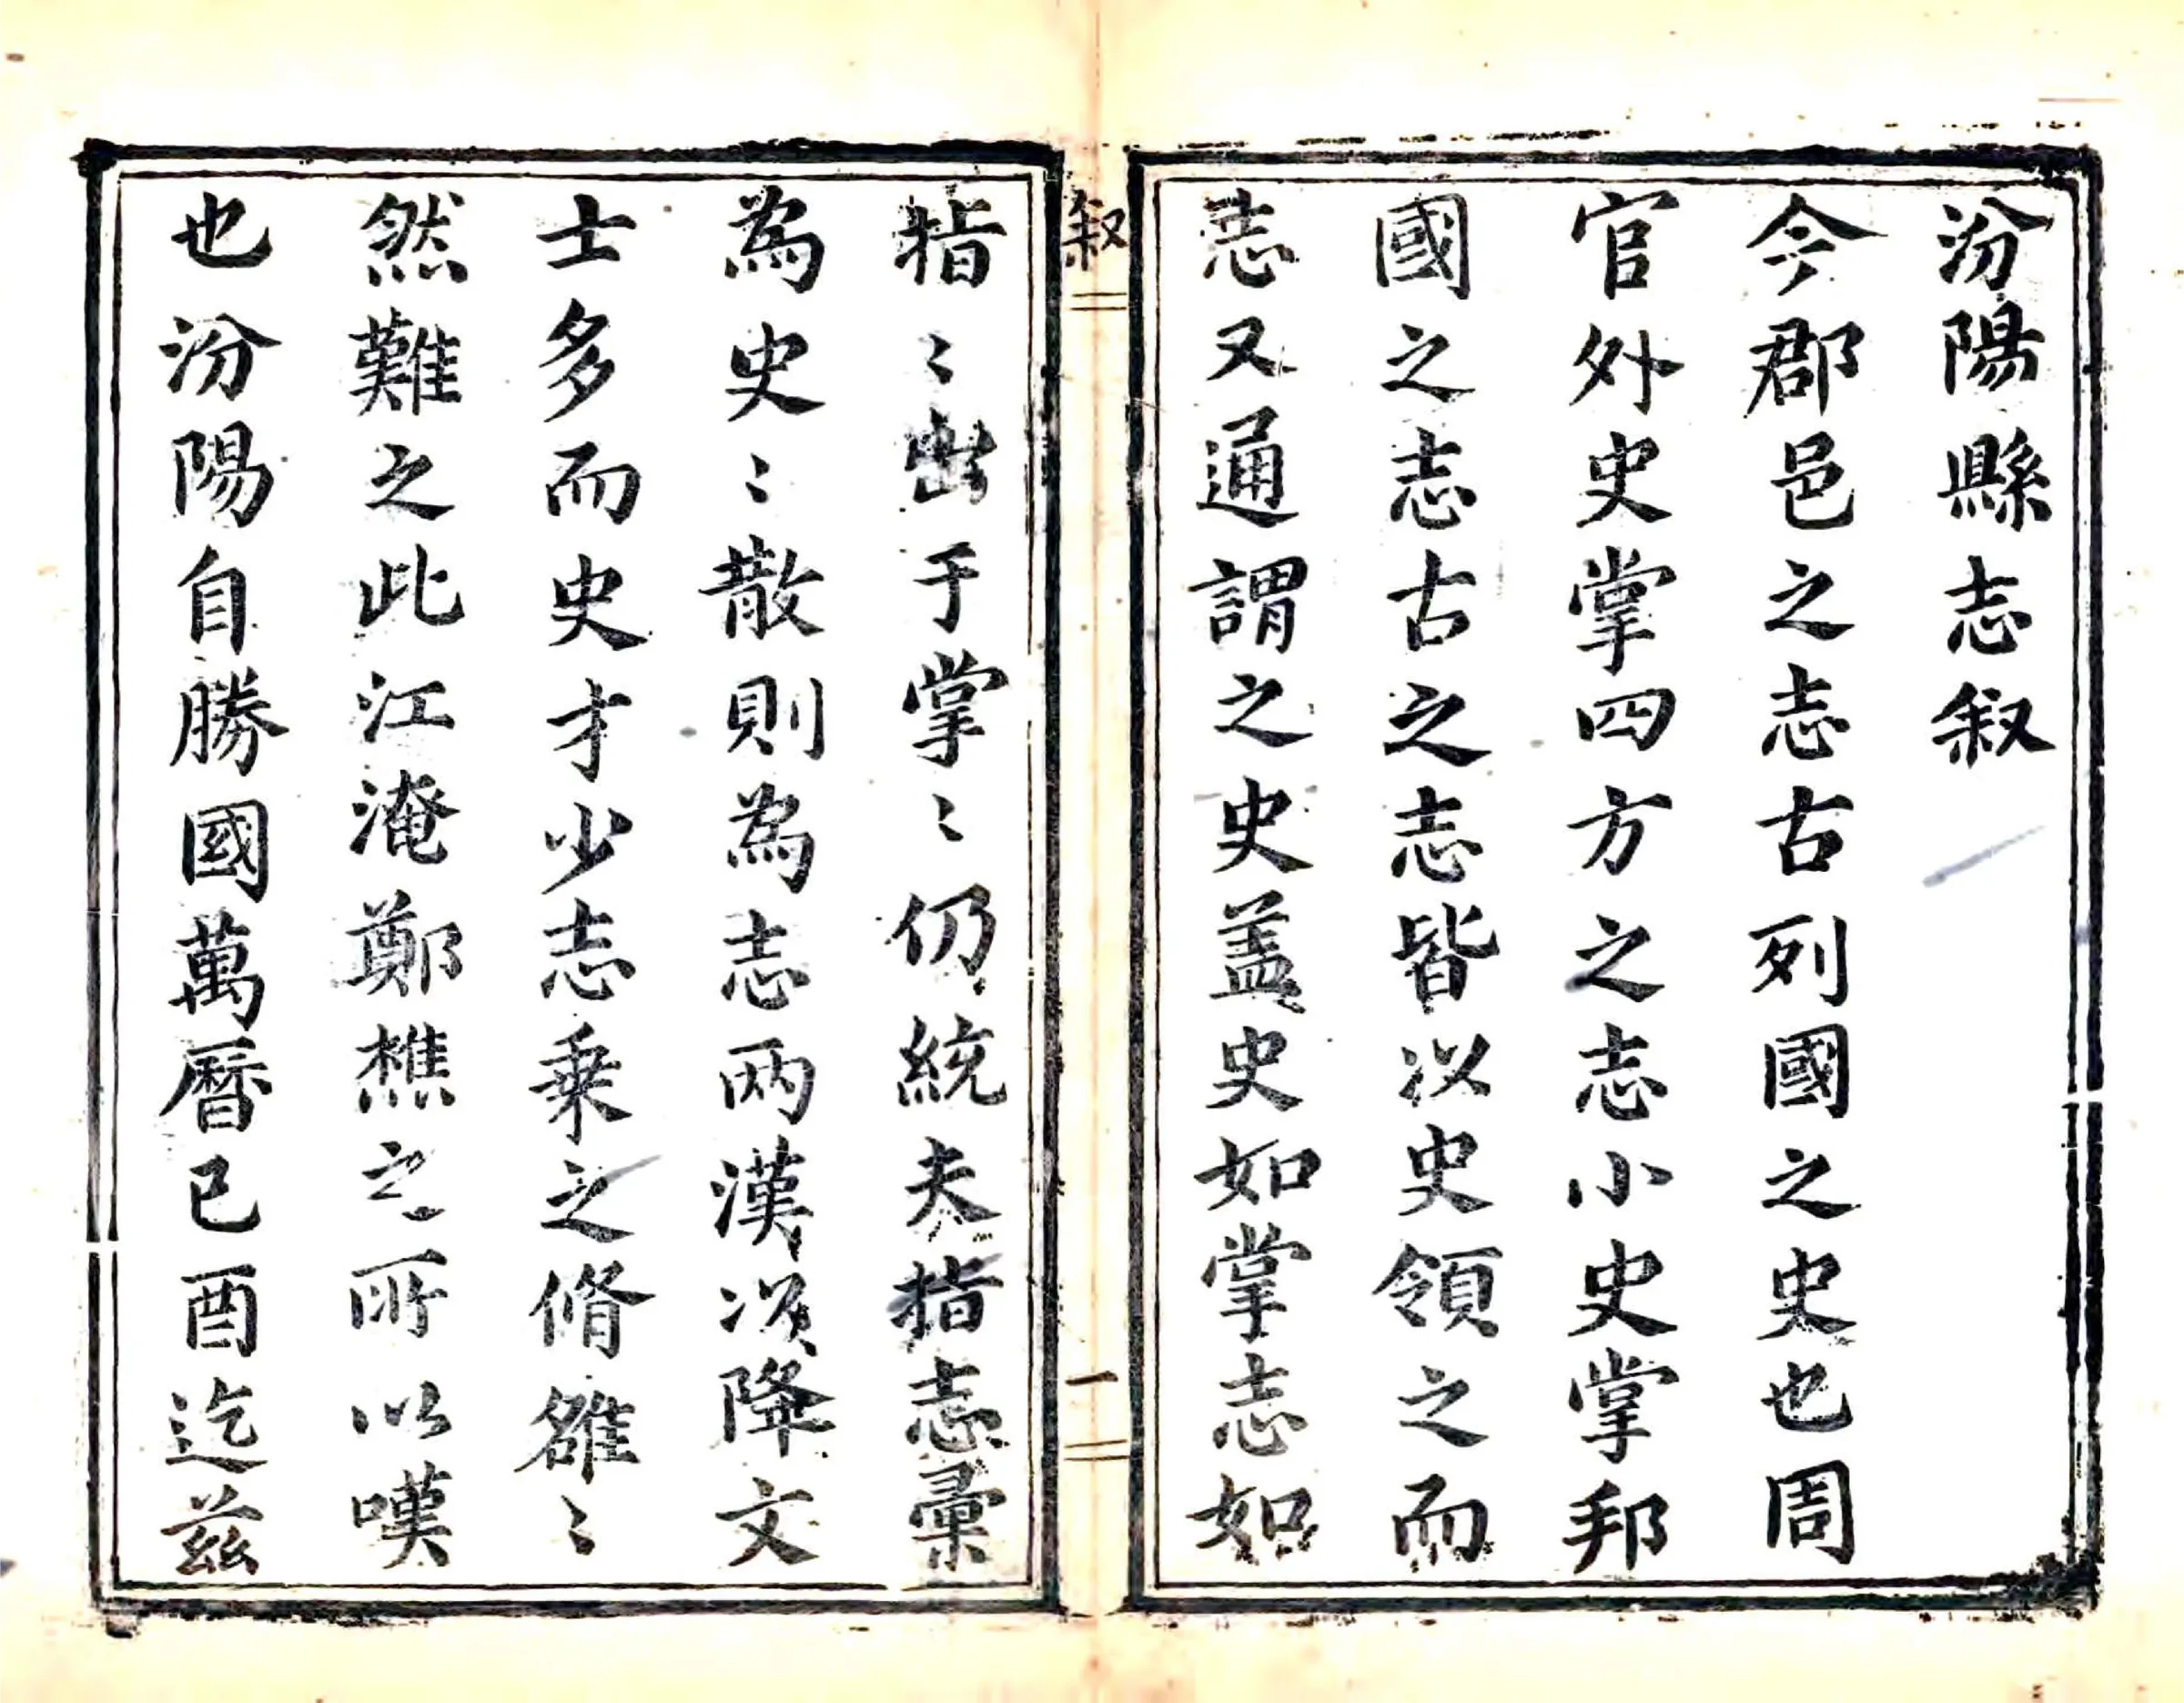 汾陽縣志叙
今郡邑之志古列國之史也周
官外史掌四方之志小史掌邦
國之志古之志皆以史領之而
志又通謂之史盖史如掌志如
叙
一
指〻出于掌〻仍統夫指志彚
為史〻散則為志两漢次降文
士多而史才少志乗之脩雖〻
然難之此江淹鄭樵之所以嘆
也汾陽自勝國萬曆已酉迄兹